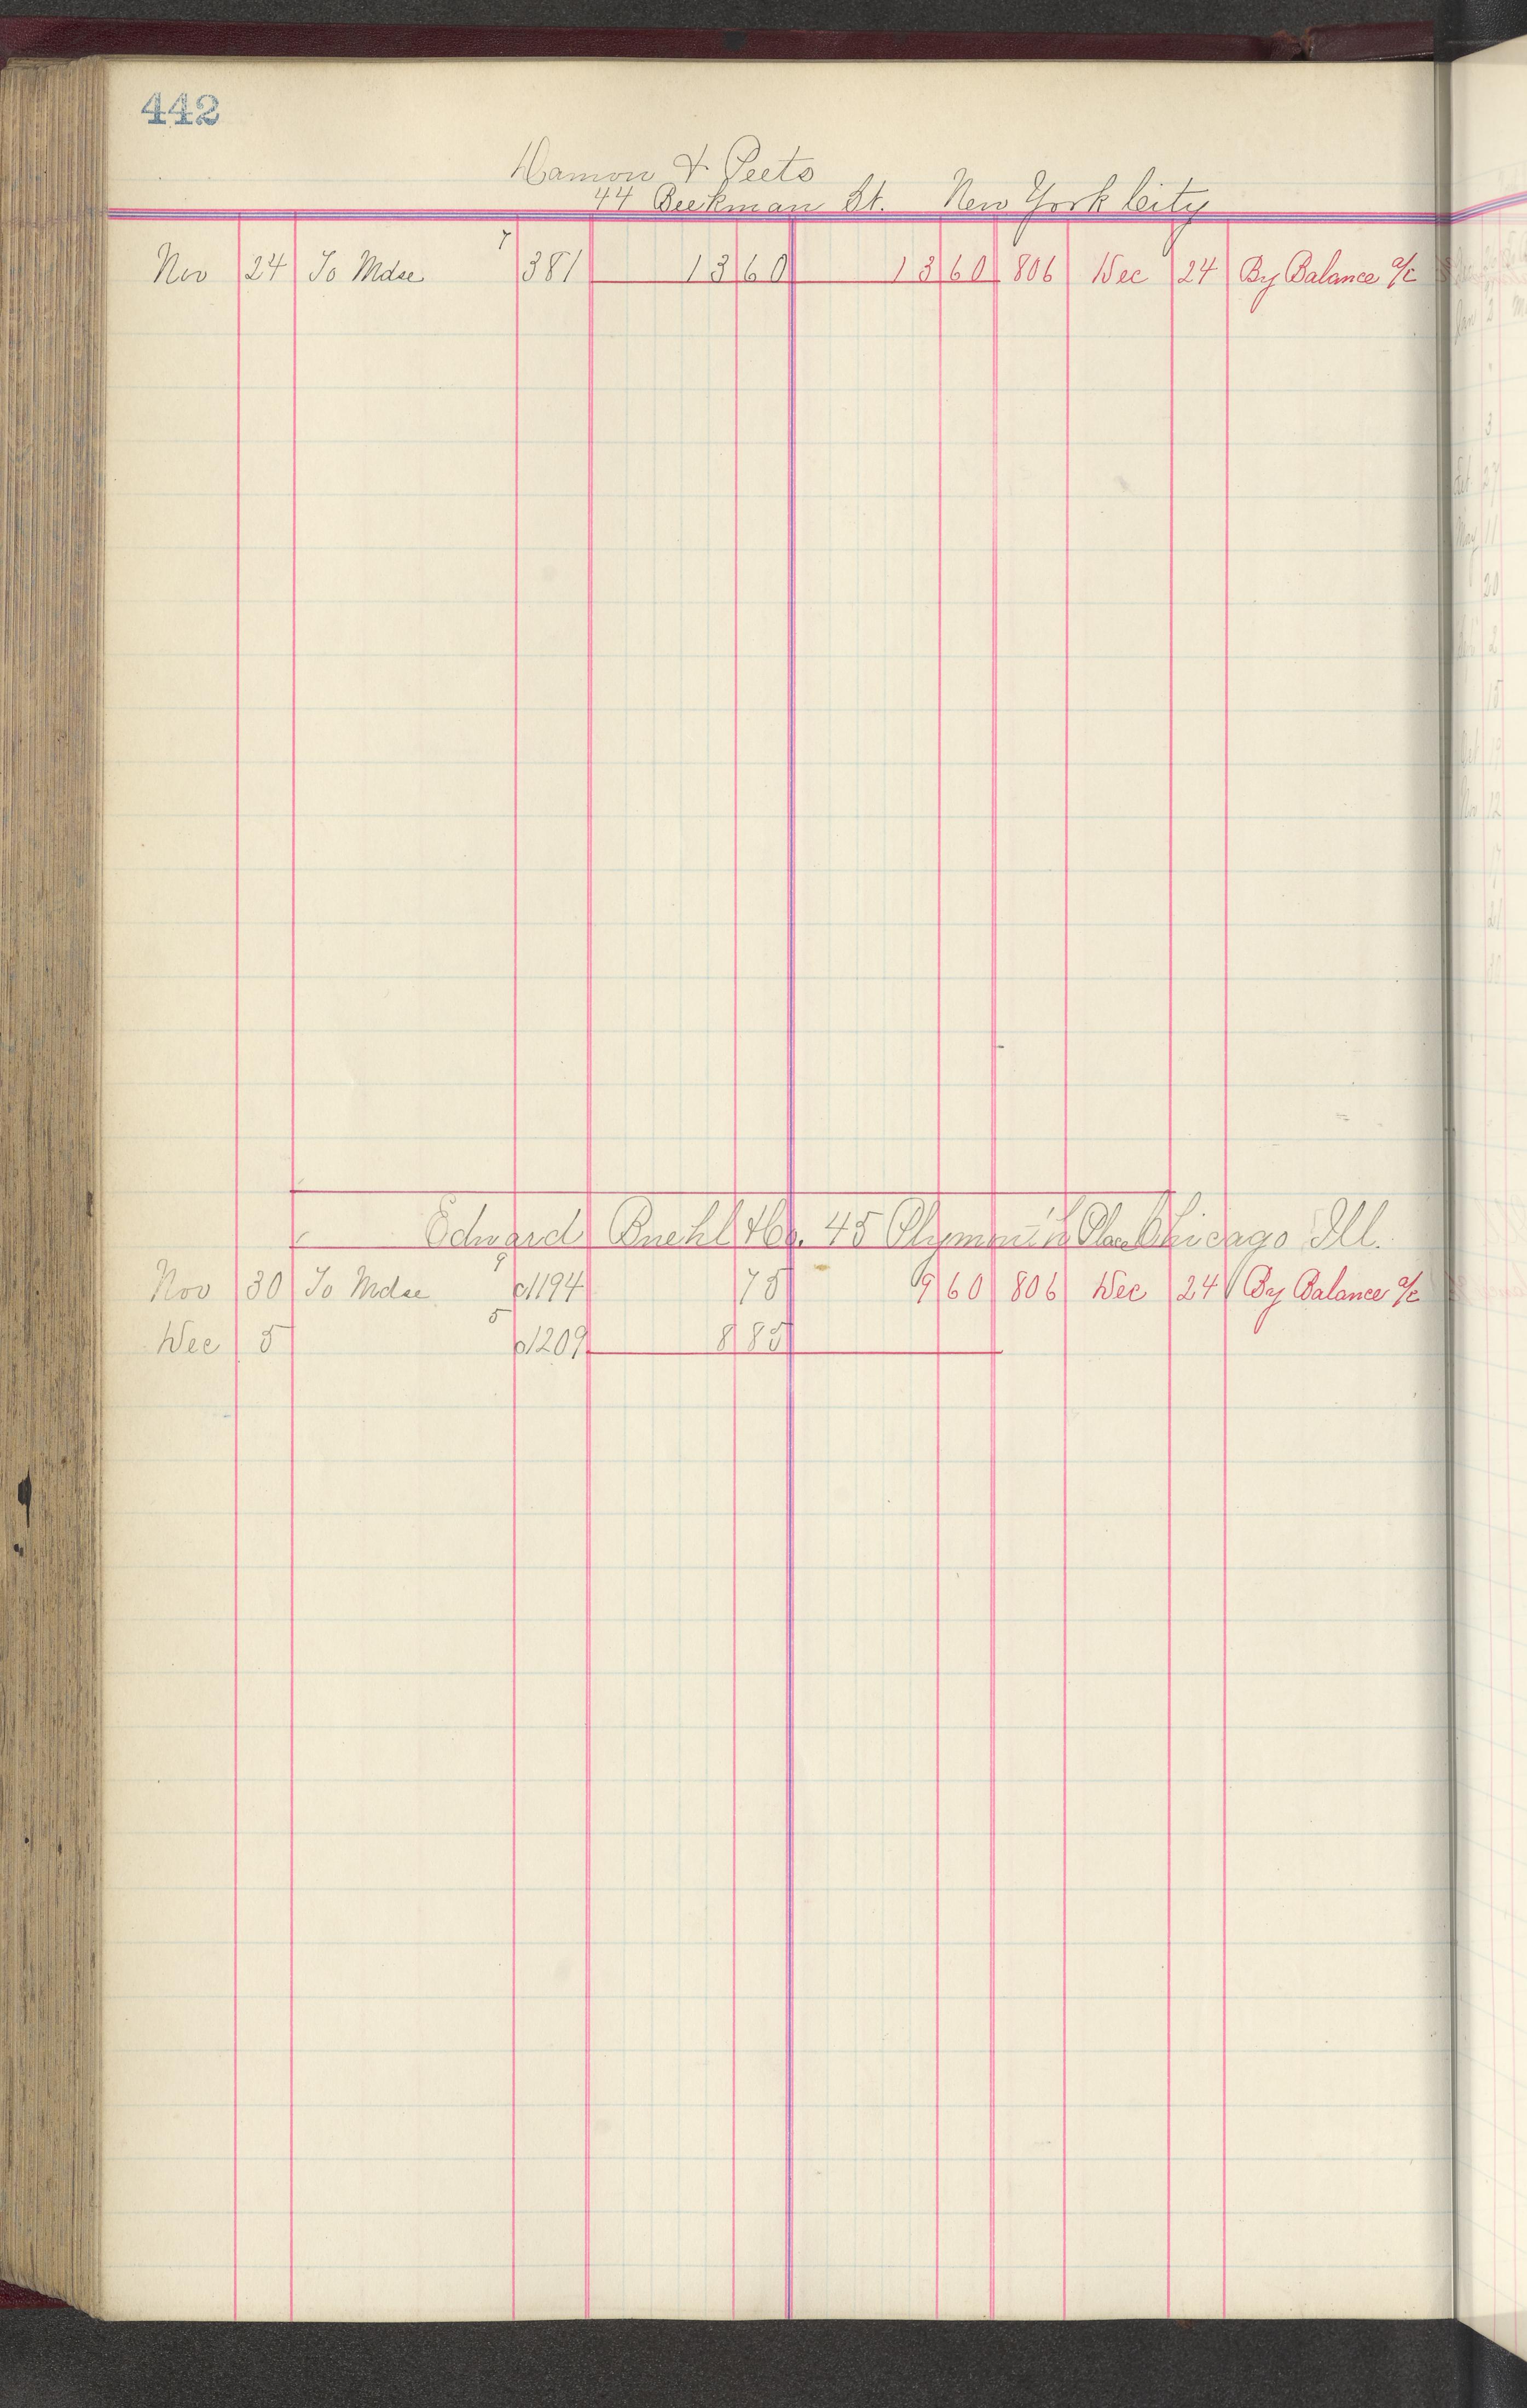 442
Damon & Peets
44 Beekman St. New York City
7
Nov 24 To Mdse 381 13 60 13 60 806 Dec 24 By Balance a/c
Edward Buehl & Co. 45 Plymouth Place Chicago Ill.
9
Nov 30 To Mdse c1194 75 9 60 806 Dec 24 By Balance a/c
5
Dec 5 c1209 8 85